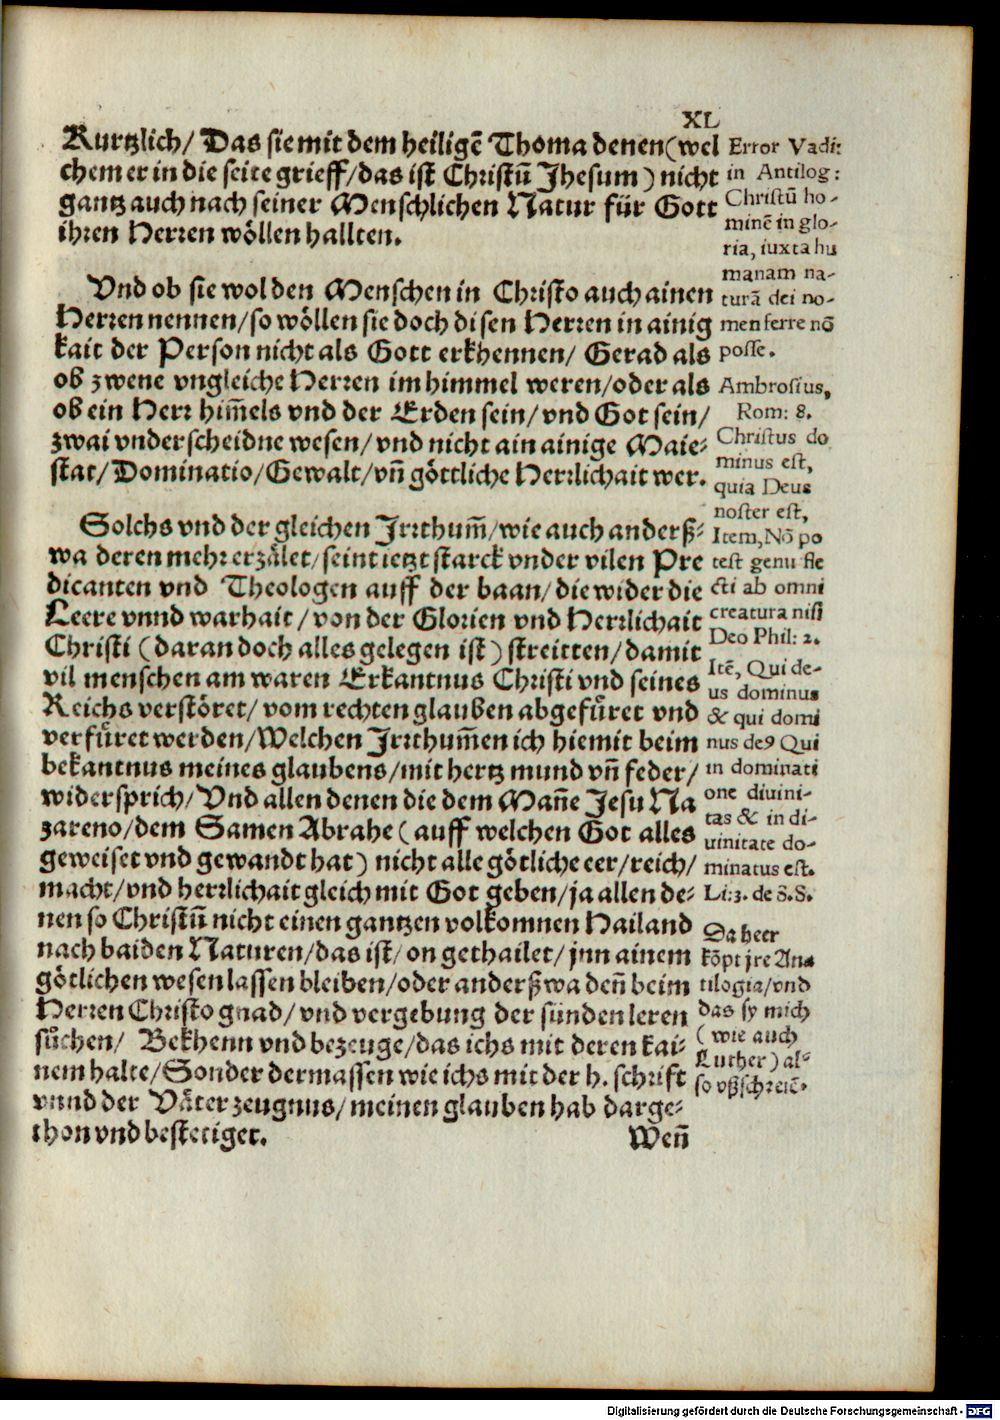 XL
Kurtzlich/ Das sie mit dem heiligē Thoma denen (wel
chem er in die seite grieff/das ist Christū Jhesum) nicht
gantz auch nach seiner Menschlichen Natur für Gott
ihren Herren wöllen hallten.
Vnd ob sie wol den Menschen in Christo auch ainen
Herren nennen/so wöllen sie doch disen Herren in ainig
kait der Person nicht als Gott erkhennen/ Gerad als
ob zwene vngleiche Herren im himmel weren/oder als
ob ein Herr him̄els vnd der Erden sein/vnd Got sein/
zwai vnderscheidne wesen/vnd nicht ain ainige Maie-
stat/Dominatio/Gewalt/vn̄ göttliche Herrlichait wer.
Solchs vnd der gleichen Irrthum̄/wie auch anderß-
wa deren mehr erzälet/seint ietzt starck vnder vilen Pre
dicanten vnd Theologen auff der baan/die wider die
Leere vnnd warhait/von der Glorien vnd Herrlichait
Christi (daran doch alles gelegen ist) streitten/damit
vil menschen am waren Erkantnus Christi vnd seines
Reichs verstöret/vom rechten glauben abgefüret vnd
verfüret werden/Welchen Irrthum̄en ich hiemit beim
bekantnus meines glaubens/mit hertz mund vn̄ feder/
widersprich/Vnd allen denen die dem Man̄e Jesu Na
zareno/dem Samen Abrahe (auff welchen Got alles
geweiset vnd gewandt hat) nicht alle götliche eer/reich/
macht/vnd herrlichait gleich mit Got geben/ja allen de-
nen so Christū nicht einen gantzen volkomnen Hailand
nach baiden Naturen/das ist/on gethailet/jnn ainem
götlichen wesen lassen bleiben/oder anderßwa den̄ beim
Herren Christo gnad/vnd vergebung der sünden leren
sůchen/ Bekhenn vnd bezeuge/das ichs mit deren kai-
nem halte/Sonder dermassen wie ichs mit der h. schrift
vnnd der Väter zeugnus/meinen glauben hab darge-
thon vnd bestetiget.
Wen̄
Error Vadi:
in Antilog:
Christū ho-
minē in glo-
ria, iuxta hu
manam na-
turā dei no-
men ferre nō
posse.
Ambrosius,
Rom: 8.
Christus do
minus est,
quia Deus
noster est,
Item, Nō po
test genu fle
cti ab omni
creatura nisi
Deo Phil: 2.
Itē, Qui de-
us dominus
& qui domi
nus deꝰ Qui
in dominati
one diuini-
tas & in di-
uinitate do-
minatus est.
Li:3. de S.S.
Da heer
kōpt jre An-
tilogia/vnd
das sy mich
(wie auch
Luther) al-
so vßschreiē.
Digitalisierung gefördert durch die Deutsche Forschungsgemeinschaft - DFG